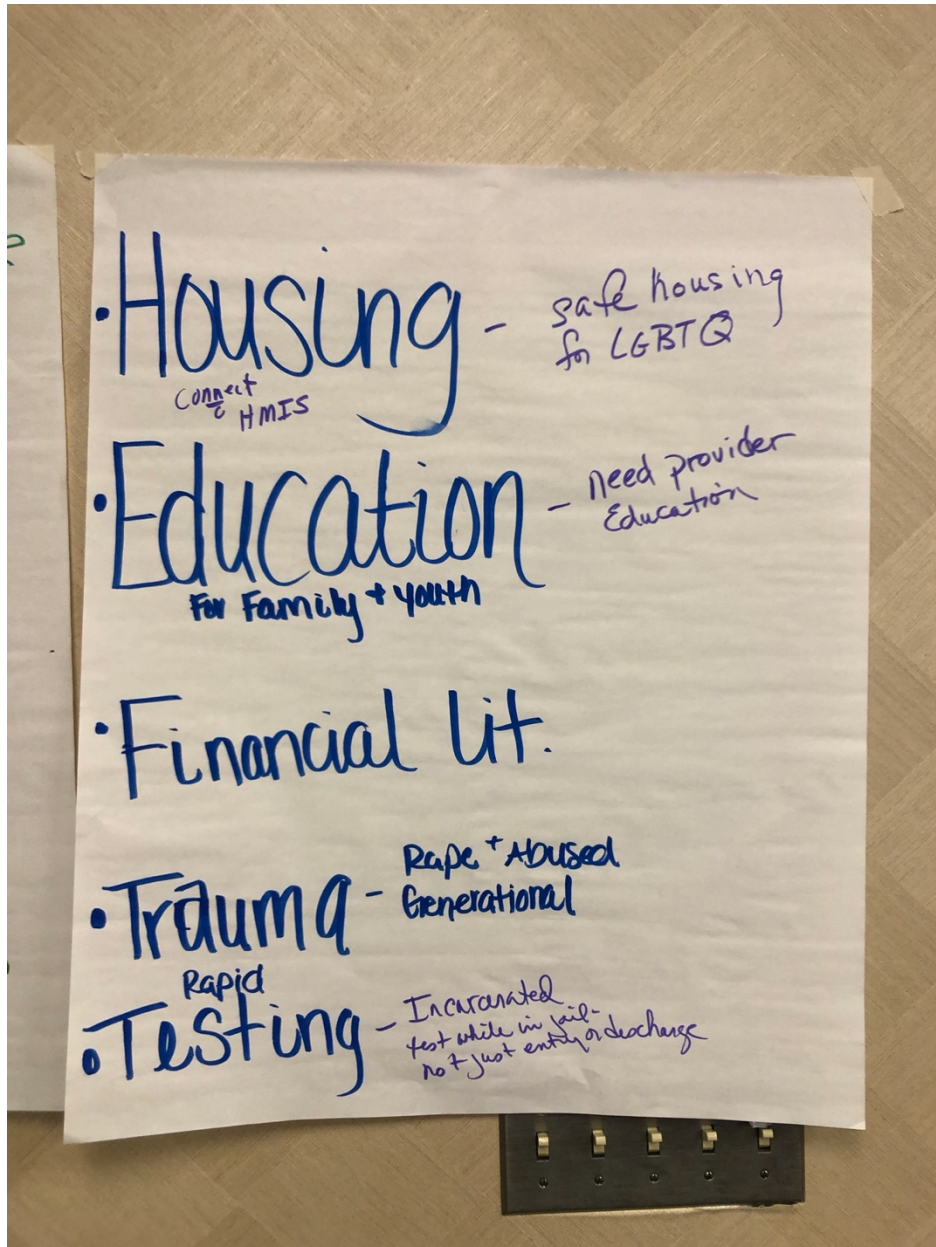 • Housing - safe housing
for LGBTQ
Connect
to HMIS
• Education - need provider
Education
For Family + youth
• Financial Lit.
• Trauma - Rape + Abused
Generational
Rapid
• Testing - Incarcerated
test while in jail-
not just entry or discharge